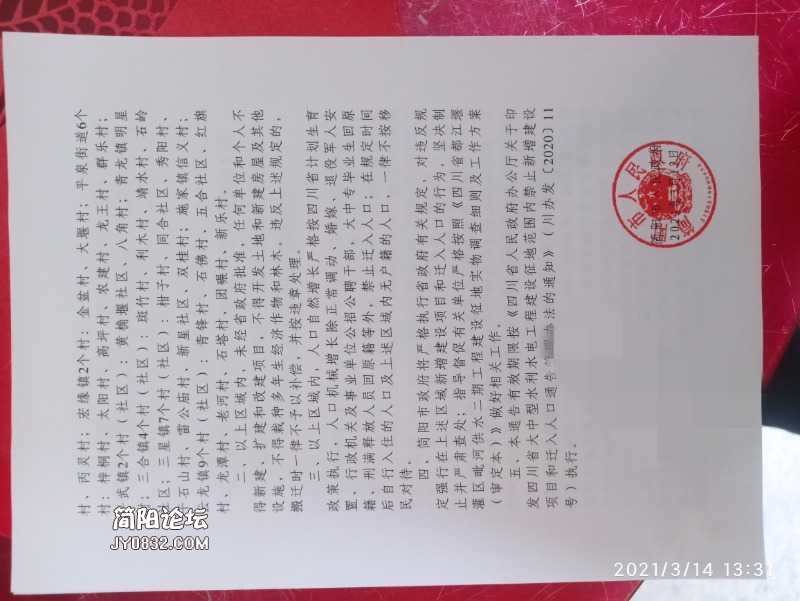 村、丙灵村；宏缘镇2个村：金盆村、大堰村；平泉街道6个
村：梓桐村、太阳村、高坪村、农建村、龙王村、群乐村；
武镇2个村（社区）：黄桷堰社区、八角村；青龙镇明星
；三合镇4个村（社区）：斑竹村、利木村、靖水村、石岭
社区；三星镇7个村（社区）：柑子村、同合社区、秀阳村、
石山村、雷公庙村、新星社区、双桂村；施家镇信义村；
云龙镇9个村（社区）：青锋村、石佛村、五合社区、红旗
村、龙潭村、老河村、石塔村、团碾村、新乐村。
二、以上区域内，未经省政府批准，任何单位和个人不
得新建、扩建和改建项目，不得开发土地和新建房屋及其他
设施，不得栽种多年生经济作物和林木。违反上述规定的，
搬迁时一律不予以补偿，并按违章处理。
三、以上区域内，人口自然增长严格按四川省计划生育
政策执行，人口机械增长除正常调动、婚嫁、退役军人安
置、行政机关及事业单位公招公聘干部，大中专毕业生回原
籍，刑满释放人员回原籍等外，禁止迁入人口；在规定时间
后自行入住的人口及上述区域内无户籍的人口，一律不按移
民对待。
四、简阳市政府将严格执行省政府有关规定，对违反规
定强行在上述区域新增建设项目和迁入人口的行为，坚决制
止并严肃查处；指导督促有关单位严格按照《四川省都江堰
灌区毗河供水二期工程建设征地实物调查细则及工作方案
（审定本）》做好相关工作。
五、本通告有效期限按《四川省人民政府办公厅关于印
发四川省大中型水利水电工程建设征地范围内禁止新增建设
项目和迁入人口通告 办法的通知》（川办发〔2020〕11
号）执行。
市人民
简阳论坛
JY0832.COM
2021/3/14 13:31